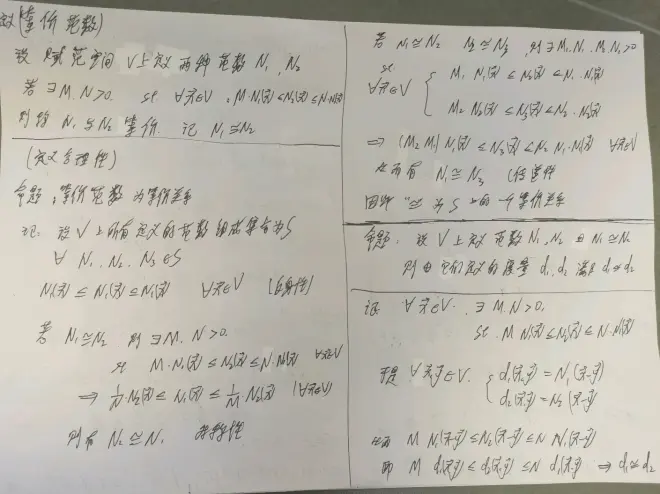 (等价范数)
设 赋范空间 V上定义两种范数 N₁, N₂
若 ∃ M. N >0. st ∀x⃗∈V, M·N₁(x⃗) ≤ N₂(x⃗) ≤ N·N₁(x⃗)
则称 N₁ 与 N₂ 等价. 记 N₁≅N₂
(定义合理性)
命题: 等价范数 为等价关系
证: 设 V 上所有定义的范数组成集合为S
∀ N₁. N₂. N₃ ∈S
N₁(x⃗) ≤ N₁(x⃗) ≤ N₁(x⃗) ∀x⃗∈V (自身性)
若 N₁≅N₂ 则 ∃ M. N >0.
st M·N₁(x⃗) ≤ N₂(x⃗) ≤ N·N₁(x⃗) ∀x⃗∈V
⇒ 1/N N₂(x⃗) ≤ N₁(x⃗) ≤ 1/M N₂(x⃗) (∀x⃗∈V)
则有 N₂ ≅ N₁
若 N₁≅N₂ N₂≅N₃, 则 ∃ M₁. N₁. M₂ N₂ >0
st
∀x⃗∈V { M₁ N₁(x⃗) ≤ N₂(x⃗) ≤ N₁·N₁(x⃗)
M₂ N₂(x⃗) ≤ N₃(x⃗) ≤ N₂·N₂(x⃗)
⇒ (M₂ M₁) N₁(x⃗) ≤ N₃(x⃗) ≤ N₂ N₁·N₁(x⃗) ∀x⃗∈V
从而有 N₁≅N₃ (传递性
因此 "≅" 为 S 上的一个等价关系
命题: 设 V 上定义范数 N₁, N₂ 且 N₁≅N₂
则由它们定义的度量 d₁, d₂ 满足 d₁≅d₂
证 ∀ x⃗∈V. ∃ M. N>0,
st. M N₁(x⃗) ≤ N₂(x⃗) ≤ N·N₁(x⃗)
于是 ∀ x⃗.y⃗∈V. { d₁(x⃗,y⃗) = N₁(x⃗-y⃗)
d₂(x⃗,y⃗) = N₂(x⃗-y⃗)
从而 M N₁(x⃗-y⃗) ≤ N₂(x⃗-y⃗) ≤ N N₁(x⃗-y⃗)
即 M d₁(x⃗,y⃗) ≤ d₂(x⃗,y⃗) ≤ N d₁(x⃗,y⃗) ⇒ d₁≅d₂